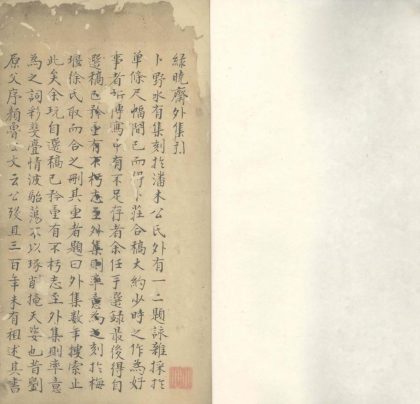 綠曉齋外集引
卜野水有集刻於潘未公氏外有一二題詠雜採於
單條尺幅間已而得卜莊合稿大約少時之作為好
事者所傳寫中有不足存者余任手選錄最後得自
選稿已矜重有不朽志至外集則率意為之刻於梅
堰徐氏取而合之刪其重者題曰外集數年搜索止
此矣余玩自選稿已矜重有不朽志至外集則率意
為之詞彩斐亹情波駘蕩不以琢削掩天姿也昔劉
原父序曹公文云公歿且三百年未有祖述其書